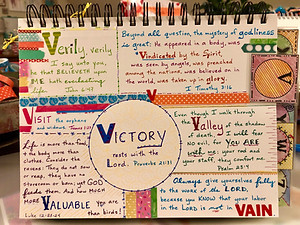 Verily, verily
I say unto you,
he that BELIEVETH upon
ME hath everlasting
Life. John 6:47
Beyond all question, the mystery of godliness
is great: He appeared in a body, was
Vindicated by the Spirit,
was seen by angels, was preached
among the nations, was believed on in
the world, was taken up in glory.
I Timothy 3:16
VISIT the orphans
and widows. James 1:27
Life is more than food,
and the body more than
clothes. Consider the
ravens: They do not sow
or reap, they have no
storeroom or barn; yet GOD
feeds them. And how much
MORE
VALUABLE you are
than birds!
Luke 12:23-24
VICTORY
rests with the
Lord. Proverbs 21:31
Even though I walk through
the Valley of the shadow
of death, I will fear
NO evil, for YOU ARE
with me; your rod and
your staff, they comfort me.
Psalm 23:4
Always give yourselves fully
to the work of the LORD,
because you KNOW that your labor
in the LORD is not in VAIN